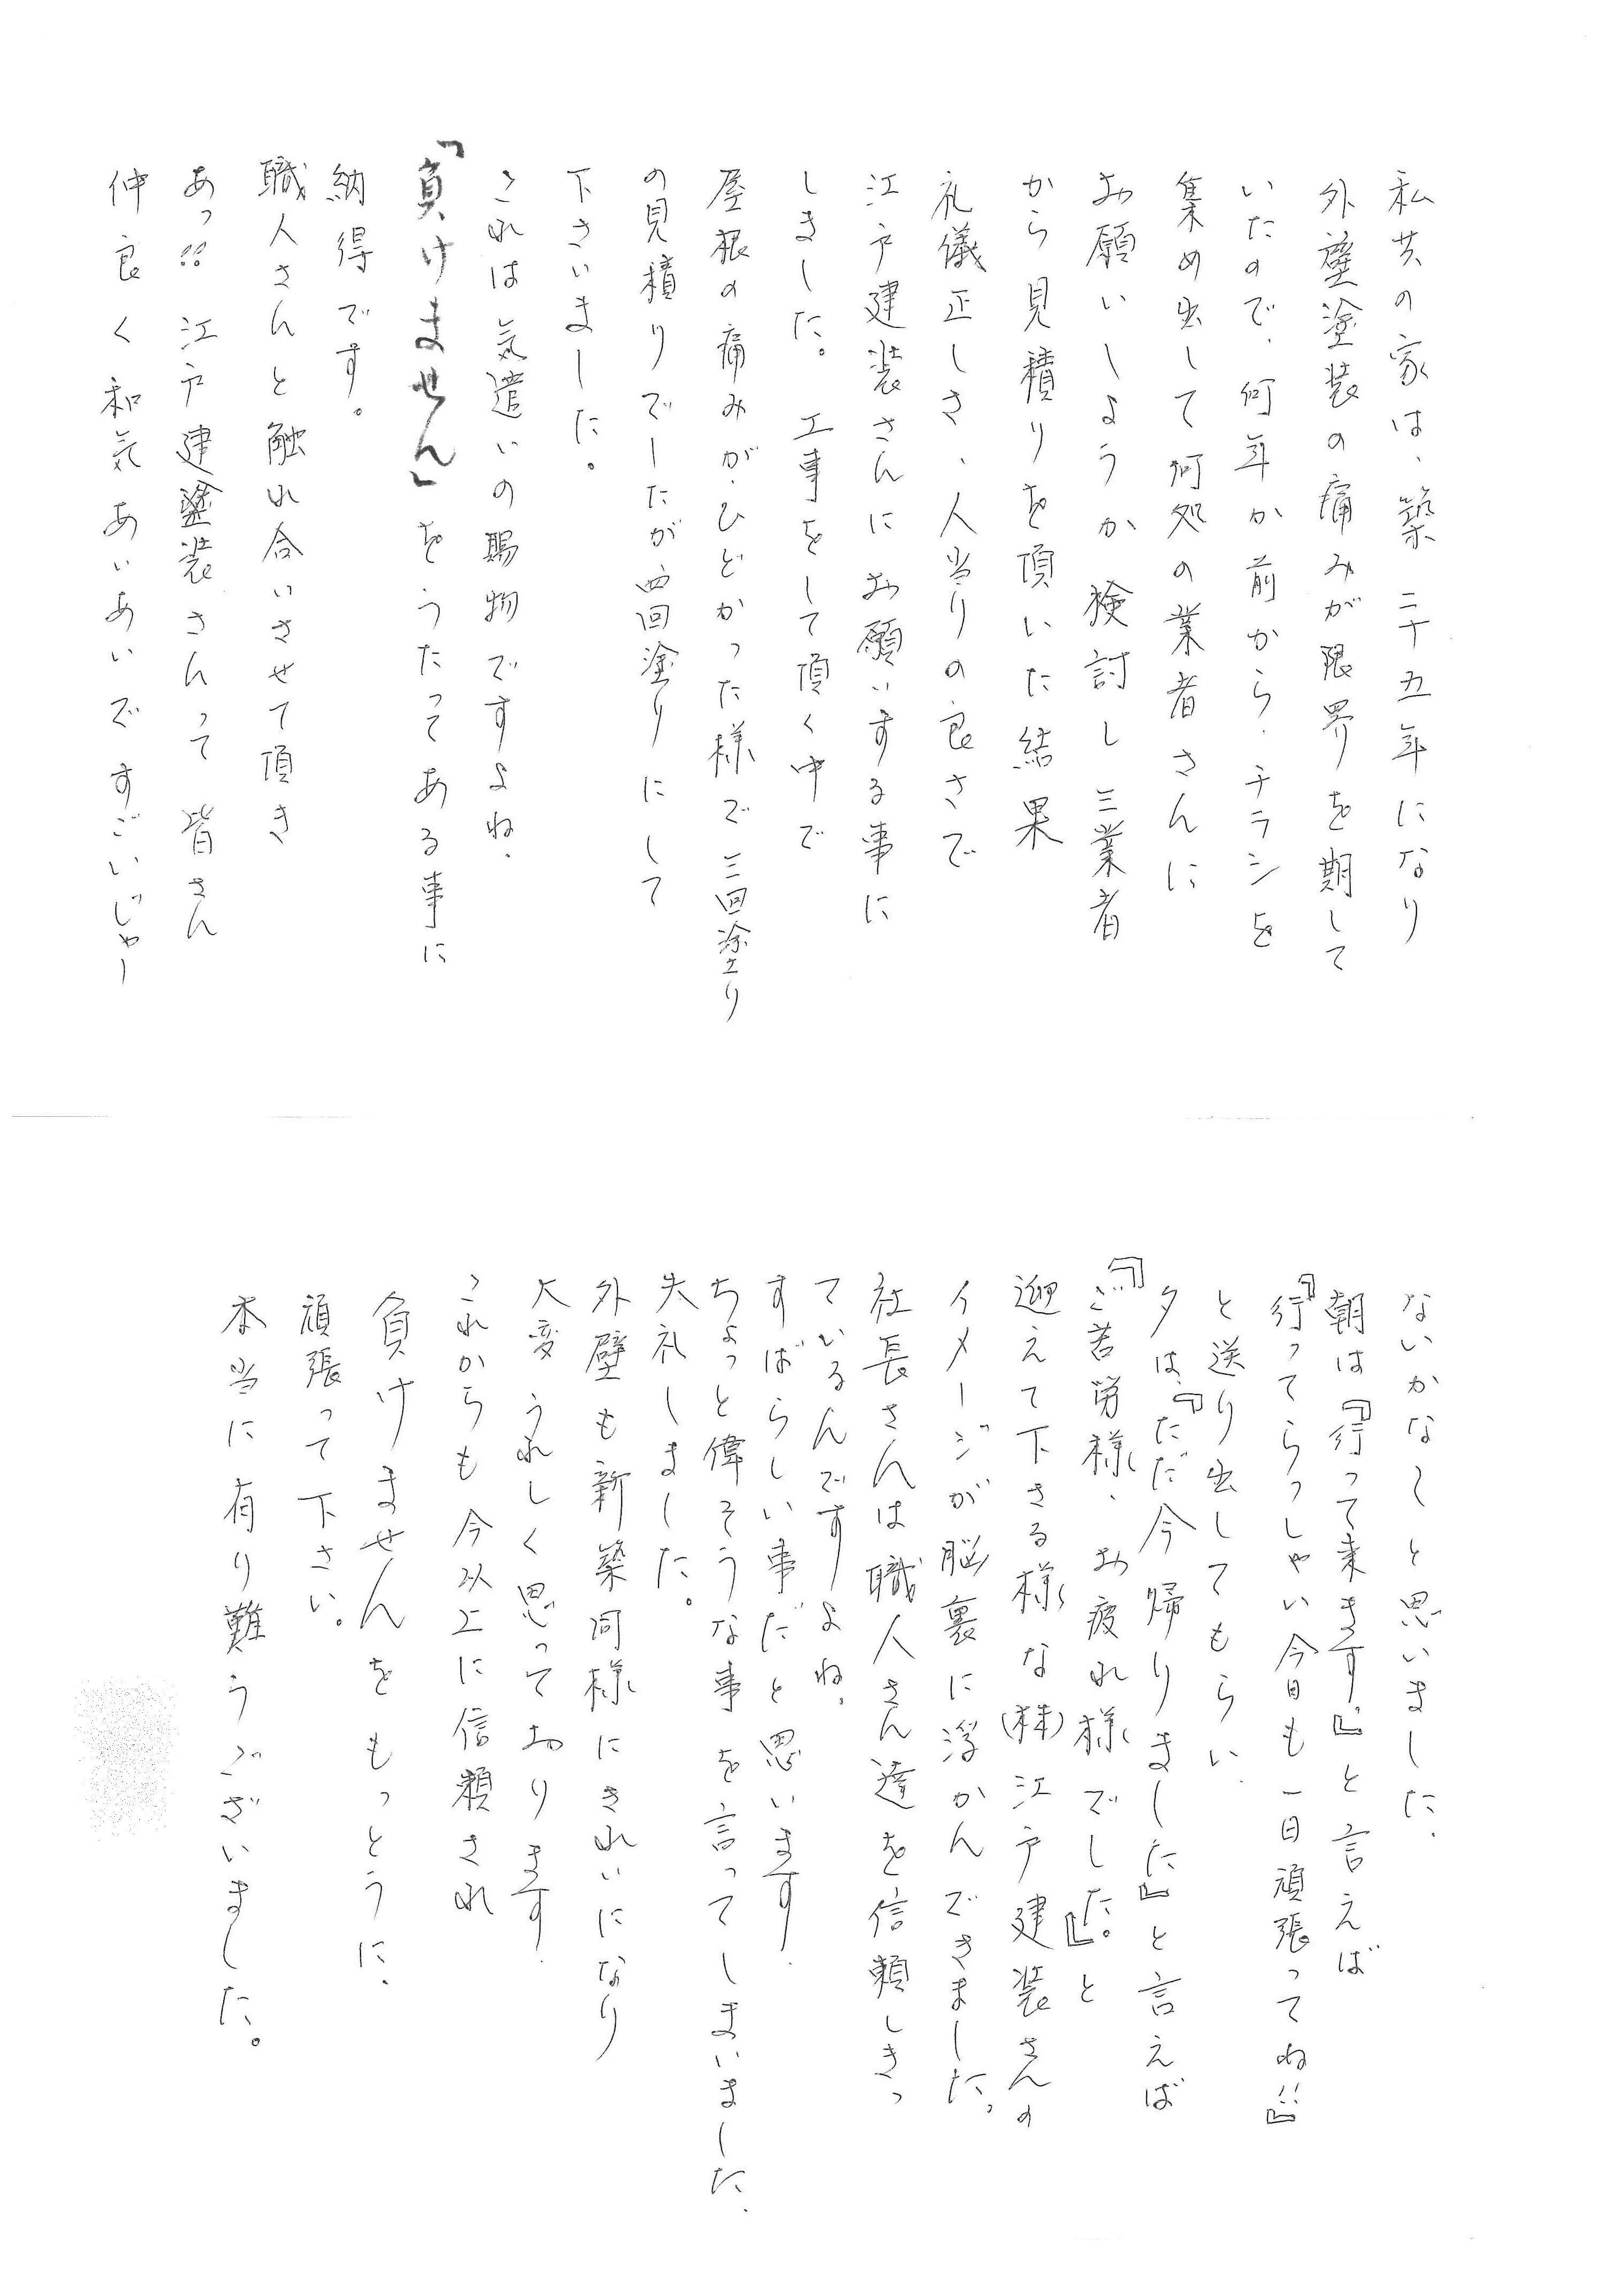 私共の家は、築 二十五年になり
外壁塗装の痛みが限界を期して
いたので、何年か前から、チラシを
集め出して何処の業者さんに
お願いしようか 検討し三業者
から見積りを頂いた結果
礼儀正しさ、人当りの良さで
江戸建装さんにお願いする事に
しました。 工事をして頂く中で
屋根の痛みが、ひどかった様で 三回塗り
の見積りでしたが 四回塗りにして
下さいました。
これは気遣いの賜物ですよね、
「負けません」をうたってある事に
納得です。
職人さんと触れ合いさせて頂き
あっ!! 江戸建塗装さんって 皆さん
仲良く和気あいあいですごいじゃー
ないかなーと思いました、
朝は『行って来ます。』と言えば
『行ってらっしゃい今日も一日頑張ってね!!』
と送り出してもらい、
夕は、『ただ今帰りました』と言えば
『ご苦労様、お疲れ様でした。』と
迎えて下さる様な(株)江戸建装さんの
イメージが脳裏に浮かんできました。
社長さんは職人さん達を信頼しきっ
ているんですよね。
すばらしい事だと思います、
ちょっと偉そうな事を言ってしまいました、
失礼しました。
外壁も新築同様にきれいになり
大変うれしく思っております、
これからも今以上に信頼され
負けませんをもっとうに、
頑張って下さい。
本当に有り難うございました。